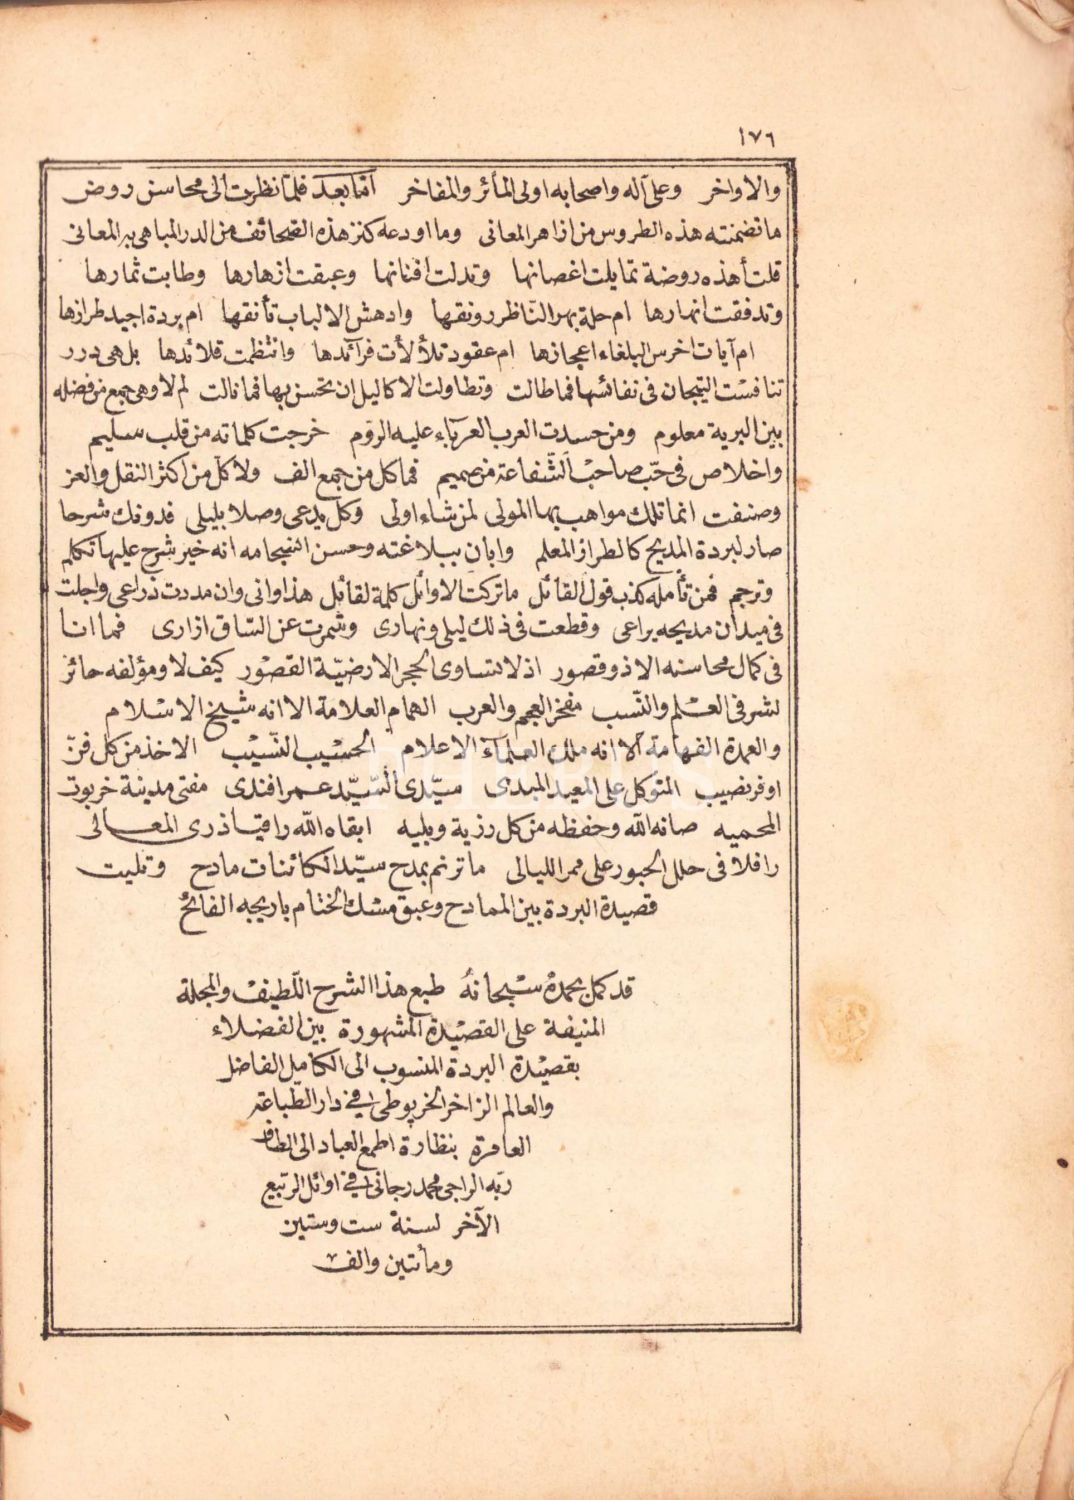 ١٧٦
والاواخر وعلى آله واصحابه اولى المأثر والمفاخر امّا بعد فلمّا نظرت الى محاسن روض
ما تضمنته هذه الطروس من ازاهر المعانى وما اودعه كنز هذه الصّحائف من الدر المباهى به المعانى
قلت أهذه روضة تمايلت اغصانها وتدلت افنانها وعبقت ازهارها وطابت ثمارها
وتدفقت انهارها ام حلة بهر النّاظر رونقها وادهش الالباب تأنقها ام بردة اجيد طرازها
ام آيات اخرس البلغاء اعجازها ام عقود تلألأت فرآئدها وانتظمت قلائدها بل هى درر
تنافست التيجان فى نفائسها فما طالت وتطاولت الاكاليل ان تحسن بها فما نالت لم لا وهى جمع من فضله
بين البرية معلوم ومن حسدت العرب العرباء عليه الروم خرجت كلماته من قلب سليم
واخلاص فى حب صاحب الشّفاعة من صميم فما كل من جمع الف ولا كل من اكثر النقل والعز
وصنفت انما تلك مواهب بها المولى لمن شاء اولى وكل يدعى وصلا بليلى فدونك شرحا
صار لبردة المديح كالطراز المعلم وابان ببلاغته وحسن انسجامه انه خير شرح عليها تكلم
وترجم فمن تأمله كذب قول القائل ما تركت الاوائل كلمة لقائل هذا وانى وان مددت ذراعى واجلت
فى ميدان مديحه يراعى وقطعت فى ذلك ليلى ونهارى وشمرت عن السّاق ازارى فما انا
فى كمال محاسنه الا ذو قصور اذ لا تساوى الحجر الارضيّة القصور كيف لا ومؤلفه حائز
لشرفى العلم والنّسب مفخر العجم والعرب الهمام العلامة الا انه شيخ الاسلام
والعمدة الفهامة الا انه ملك العلمآء الاعلام الحسيب النّسيب الاخذ من كل فنّ
اوفر نصيب المتوكل على المعيد المبدى سيّدى السّيّد عمر افندى مفتى مدينة خربوت
المحميه صانه الله وحفظه من كل رزية وبليه ابقاه الله راقيا ذرى المعالى
رافلا فى حلل الحبور على ممر الليالى ما ترنم بمدح سيّد الكائنات مادح وتليت
قصيدة البردة بين الممادح وعبق مسك الختام باريجه الفائح
قد كمل بحمده سبحانه طبع هذا الشرح اللّطيف والمجلة
المنيفة على القصيدة المشهورة بين الفضلاء
بقصيدة البردة المنسوب الى الكامل الفاضل
والعالم الزاخر الخرپوطى فى دار الطباعة
العامرة بنظارة اطمع العباد الى الطاف
ربه الراجى محمد رجائى فى اوائل الربيع
الآخر لسنة ست وستين
ومأتين والف